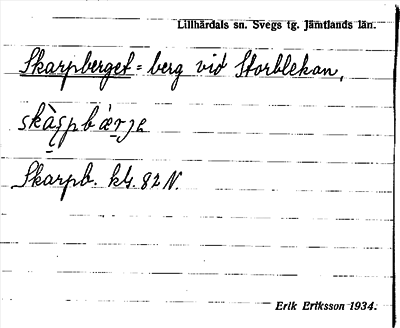 Lillhärdals sn. Svegs tg. Jämtlands län.
Skarpberget = berg vid Storblekan,
Skarpb. 82 N.
Erik Eriksson 1934.